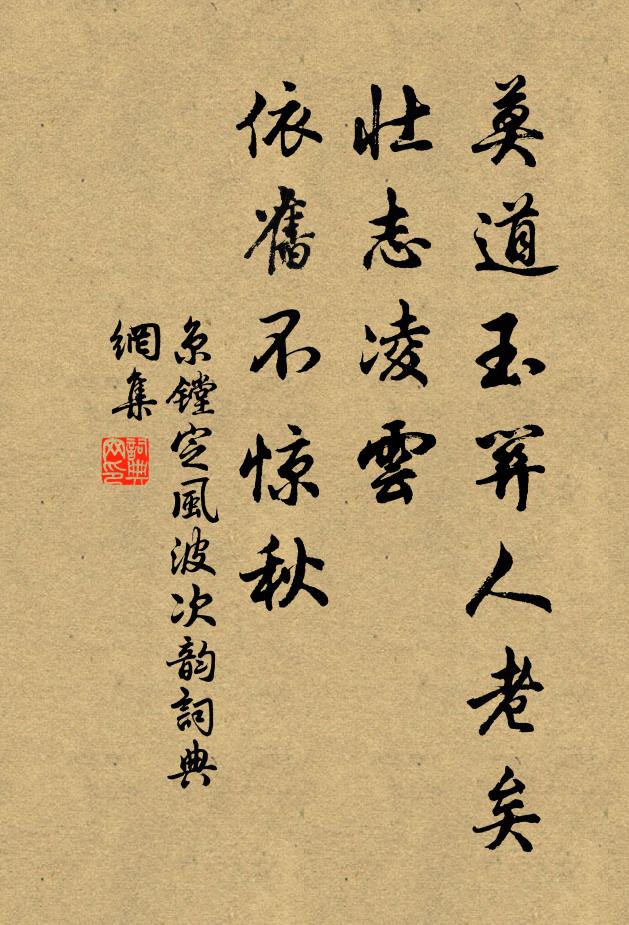 莫道玉關人老矣
壮志凌雲
依舊不惊秋
京镗定風波次韵詞典
網集
詞典网印